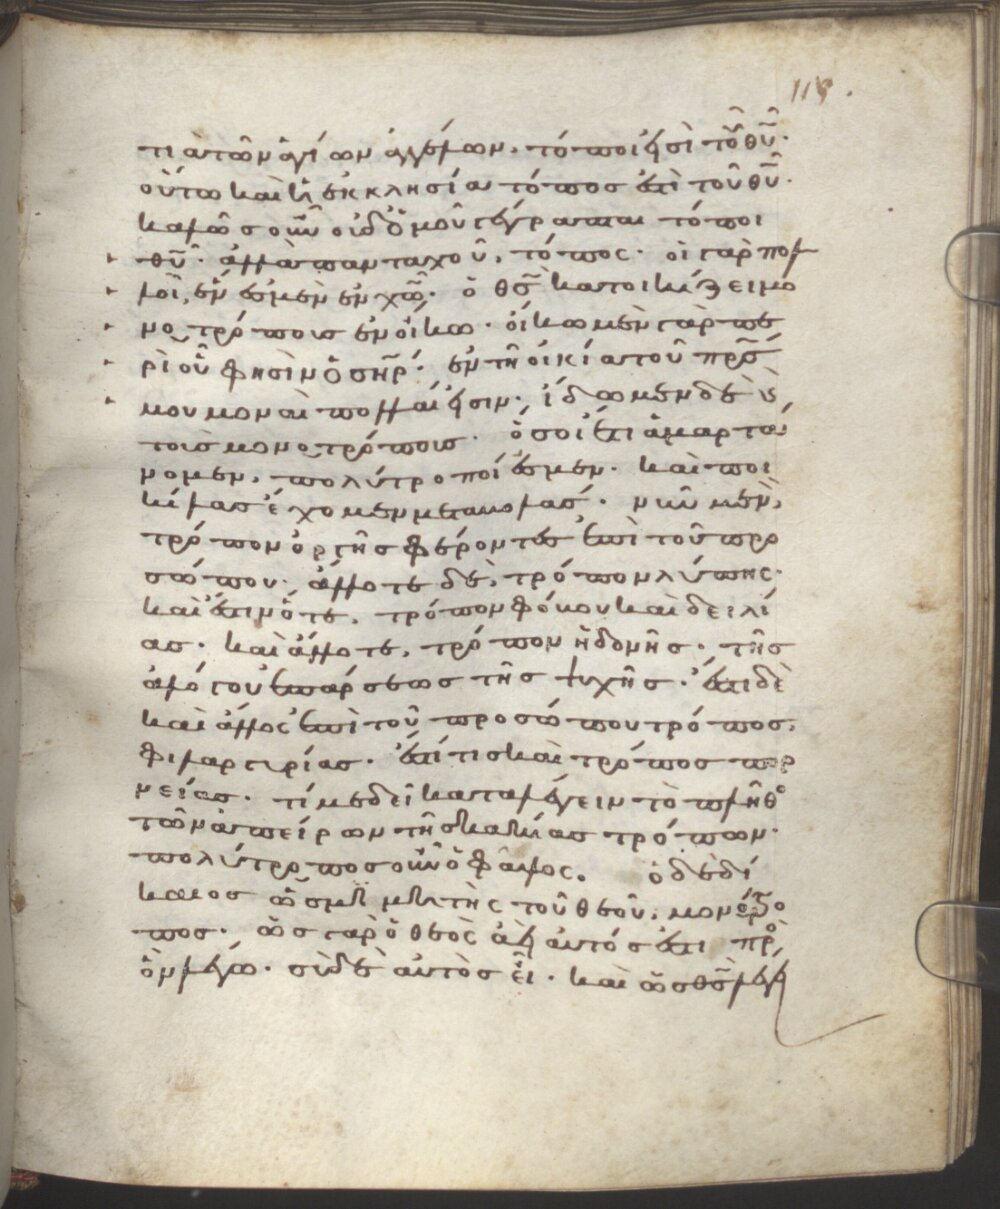 τι ἀ τῶν ἁγίων ἀγγέλων, τόποι εἰσὶ τοῦ θῦ·
οὕτω καὶ ἡ ἐκκλησία τόπος ἐστὶ τοῦ θῦ.
καλῶς οὖν οὐδαμοῦ γέγραπται τόποι
θῦ· ἀλλὰ πανταχοῦ, τόπος· οἱ γὰρ πολ
λοὶ, ἕν ἐσμεν ἐν χῶ· ὁ θς κατοικίζει μο
νοτρόπους ἐν οἴκω· οἴκω μὲν γὰρ πε
ρὶ οὗ φησὶν ὁ σηρ· ἐν τῆ οἰκία τοῦ πρς
μου μοναὶ πολλαί εἰσιν· ἴδωμεν δὲ ἐ
τοῖς μονοτρόποις· ὅσοι ἔτι ἁμαρτά
νομεν, πολύτροποί ἐσμεν· καὶ ποι
κίλας ἔχομεν μεταβολάς· νῦν μὲν,
τρόπον ὀργῆς φέροντες ἐπὶ τοῦ προ
σώπου· ἄλλοτε δὲ, τρόπον λύπης·
καὶ ἔστιν ὅτε, τρόπον φόβου καὶ δειλί
ας· καὶ ἄλλοτε, τρόπον ἡδονῆς· τῆς
ἀλόγου ἐπάρσεως τῆς ψυχῆς· ἔστι δὲ
καὶ ἄλλος ἐπὶ τοῦ προσώπου τρόπος,
φιλαργυρίας· ἔστι τις καὶ τρόπος πορ
νείας· τί με δεῖ καταλέγειν τὸ πλῆθο
τῶν ἀπείρων τῆς κακίας τρόπων·
πολύτροπος οὖν ὁ φαῦλος. ὁ δὲ δί
καιος ὡς μιμητὴς τοῦ θεοῦ, μονότρο
πος· ὡς γὰρ ὁ θεὸς ἀεὶ αὐτός ἐστι πρὸ
ὃν λέγω· σὺ δὲ αὐτὸς εἶ· καὶ ὡς θς λέγει